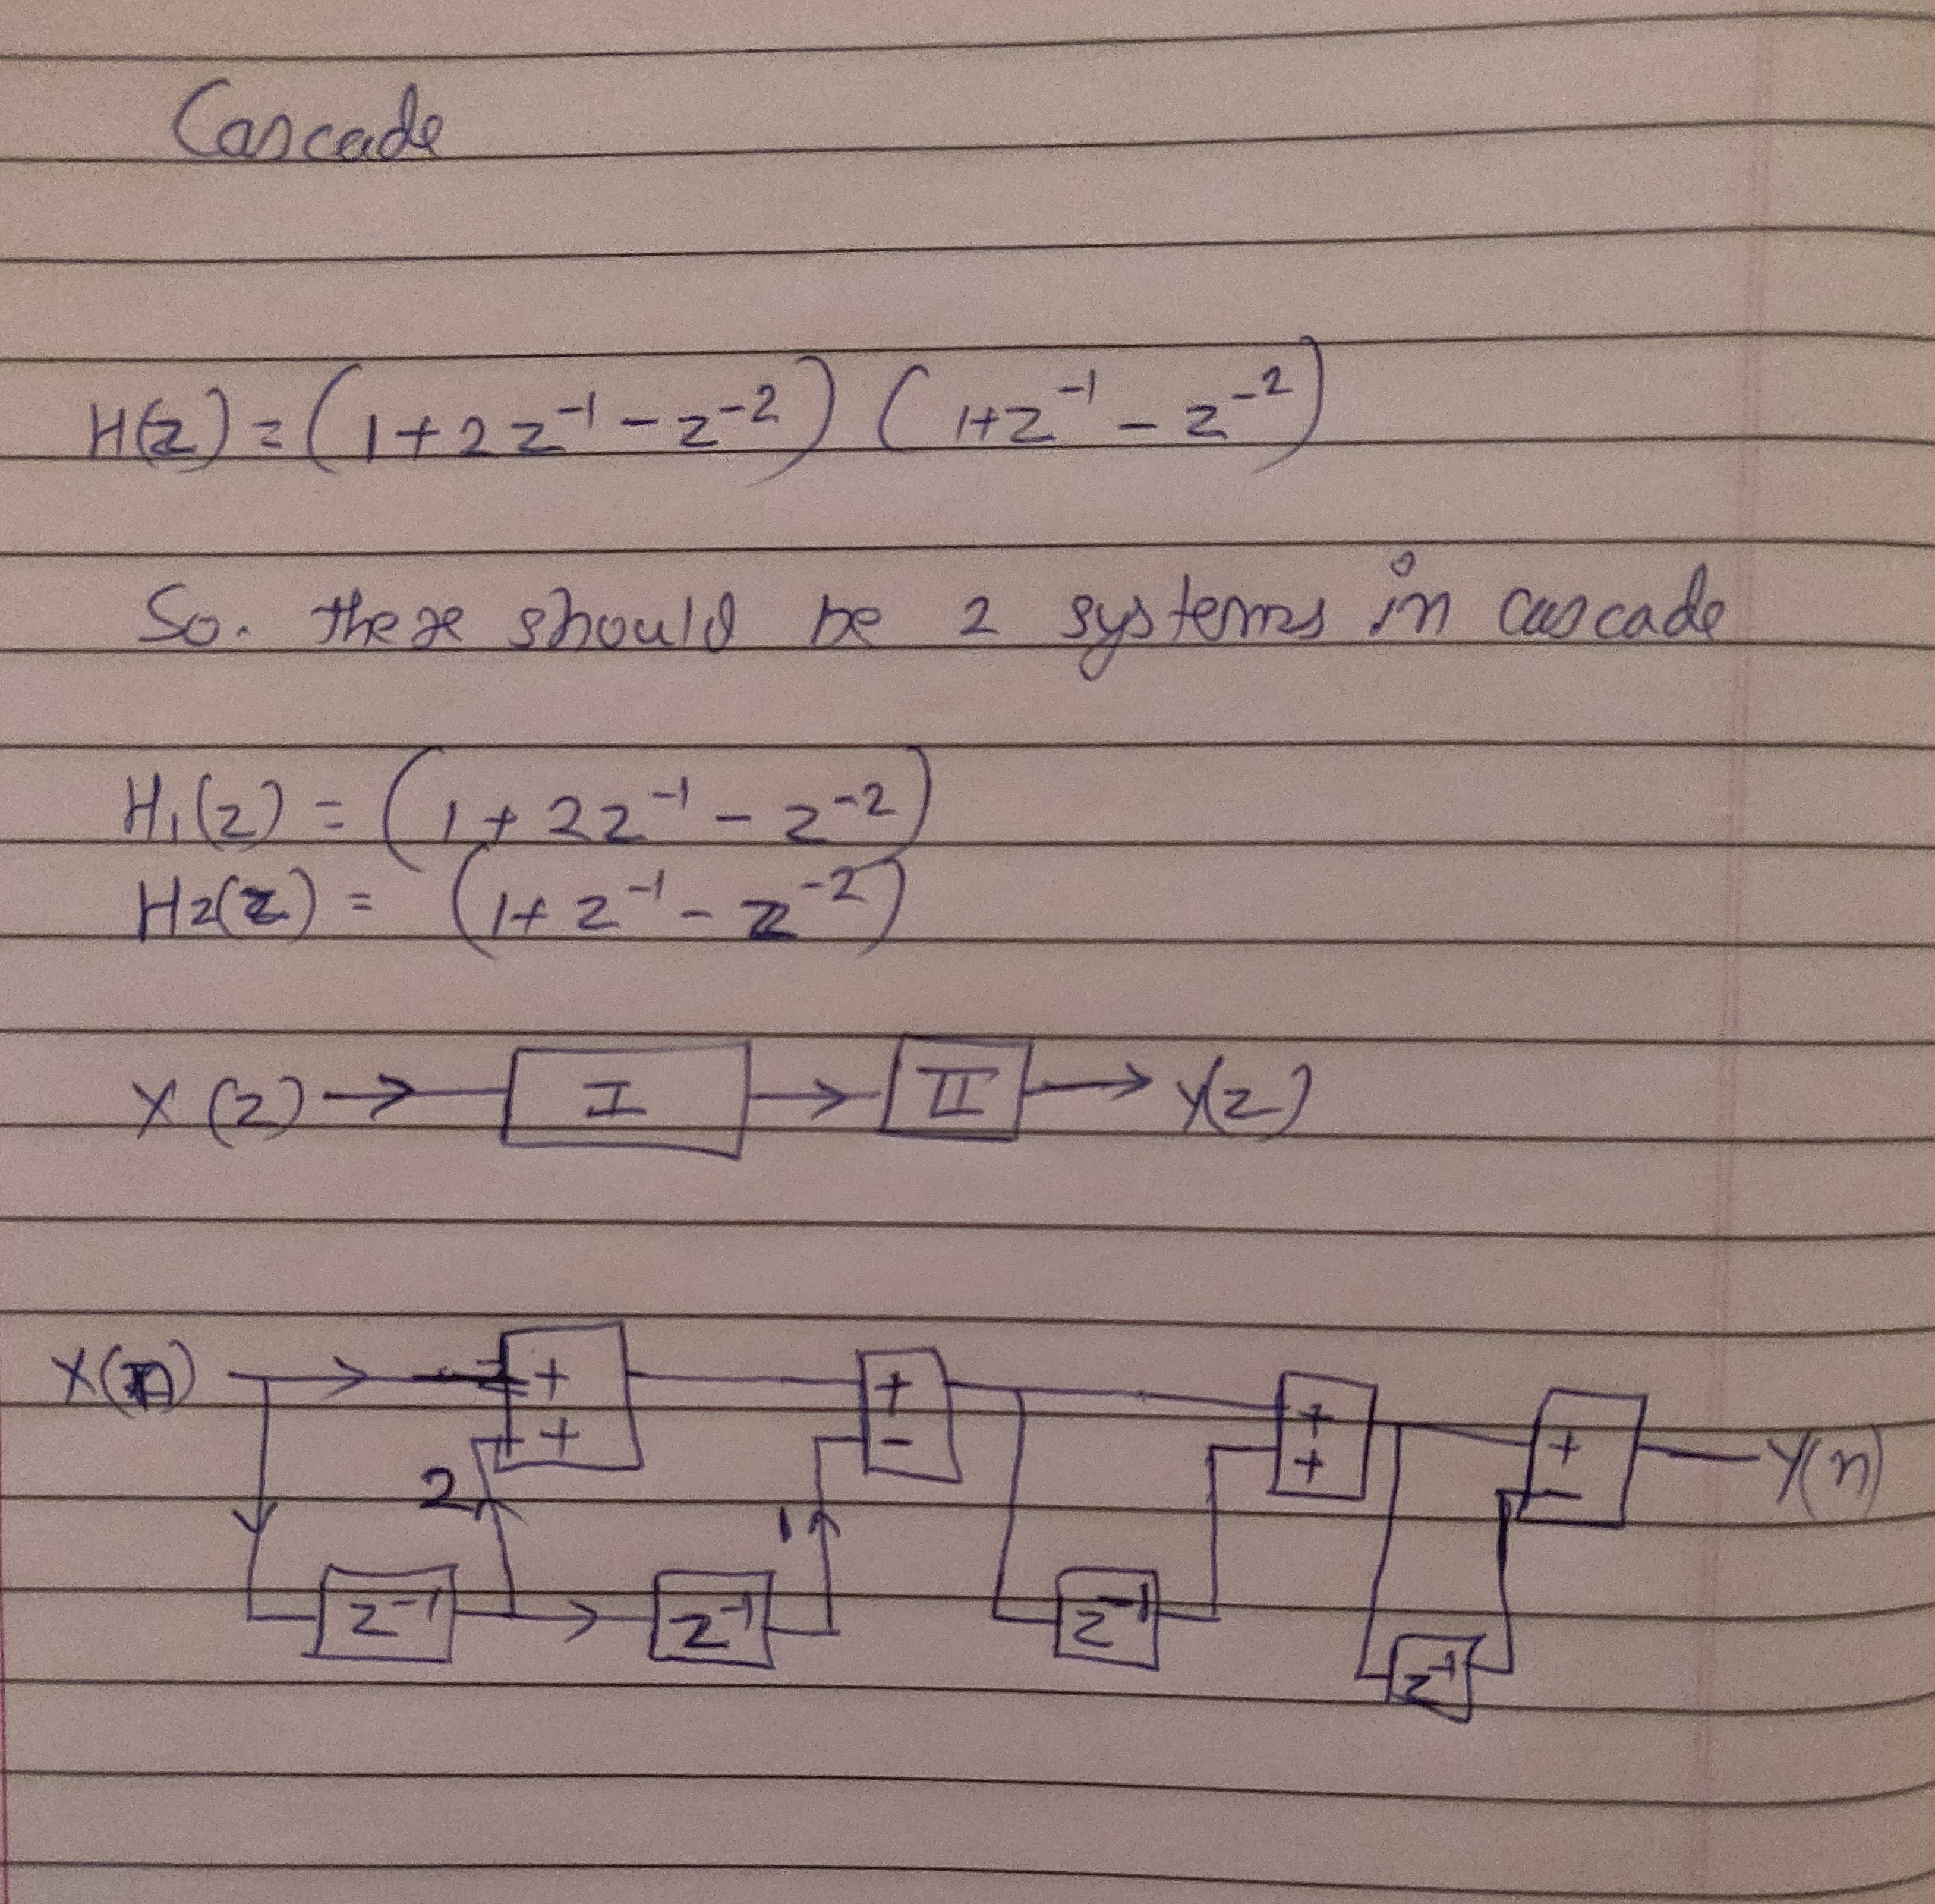 Cascade
H(z) = (1+2z⁻¹-z⁻²) (1+z⁻¹-z⁻²)
So. there should be 2 systems in cascade
H₁(z) = (1+2z⁻¹-z⁻²)
H2(z) = (1+z⁻¹-z⁻²)
X(z) → I → II → Y(z)
X(n) + + + + Y(n)
+ - + -
2 1
z⁻¹ z⁻¹ z⁻¹ z⁻¹